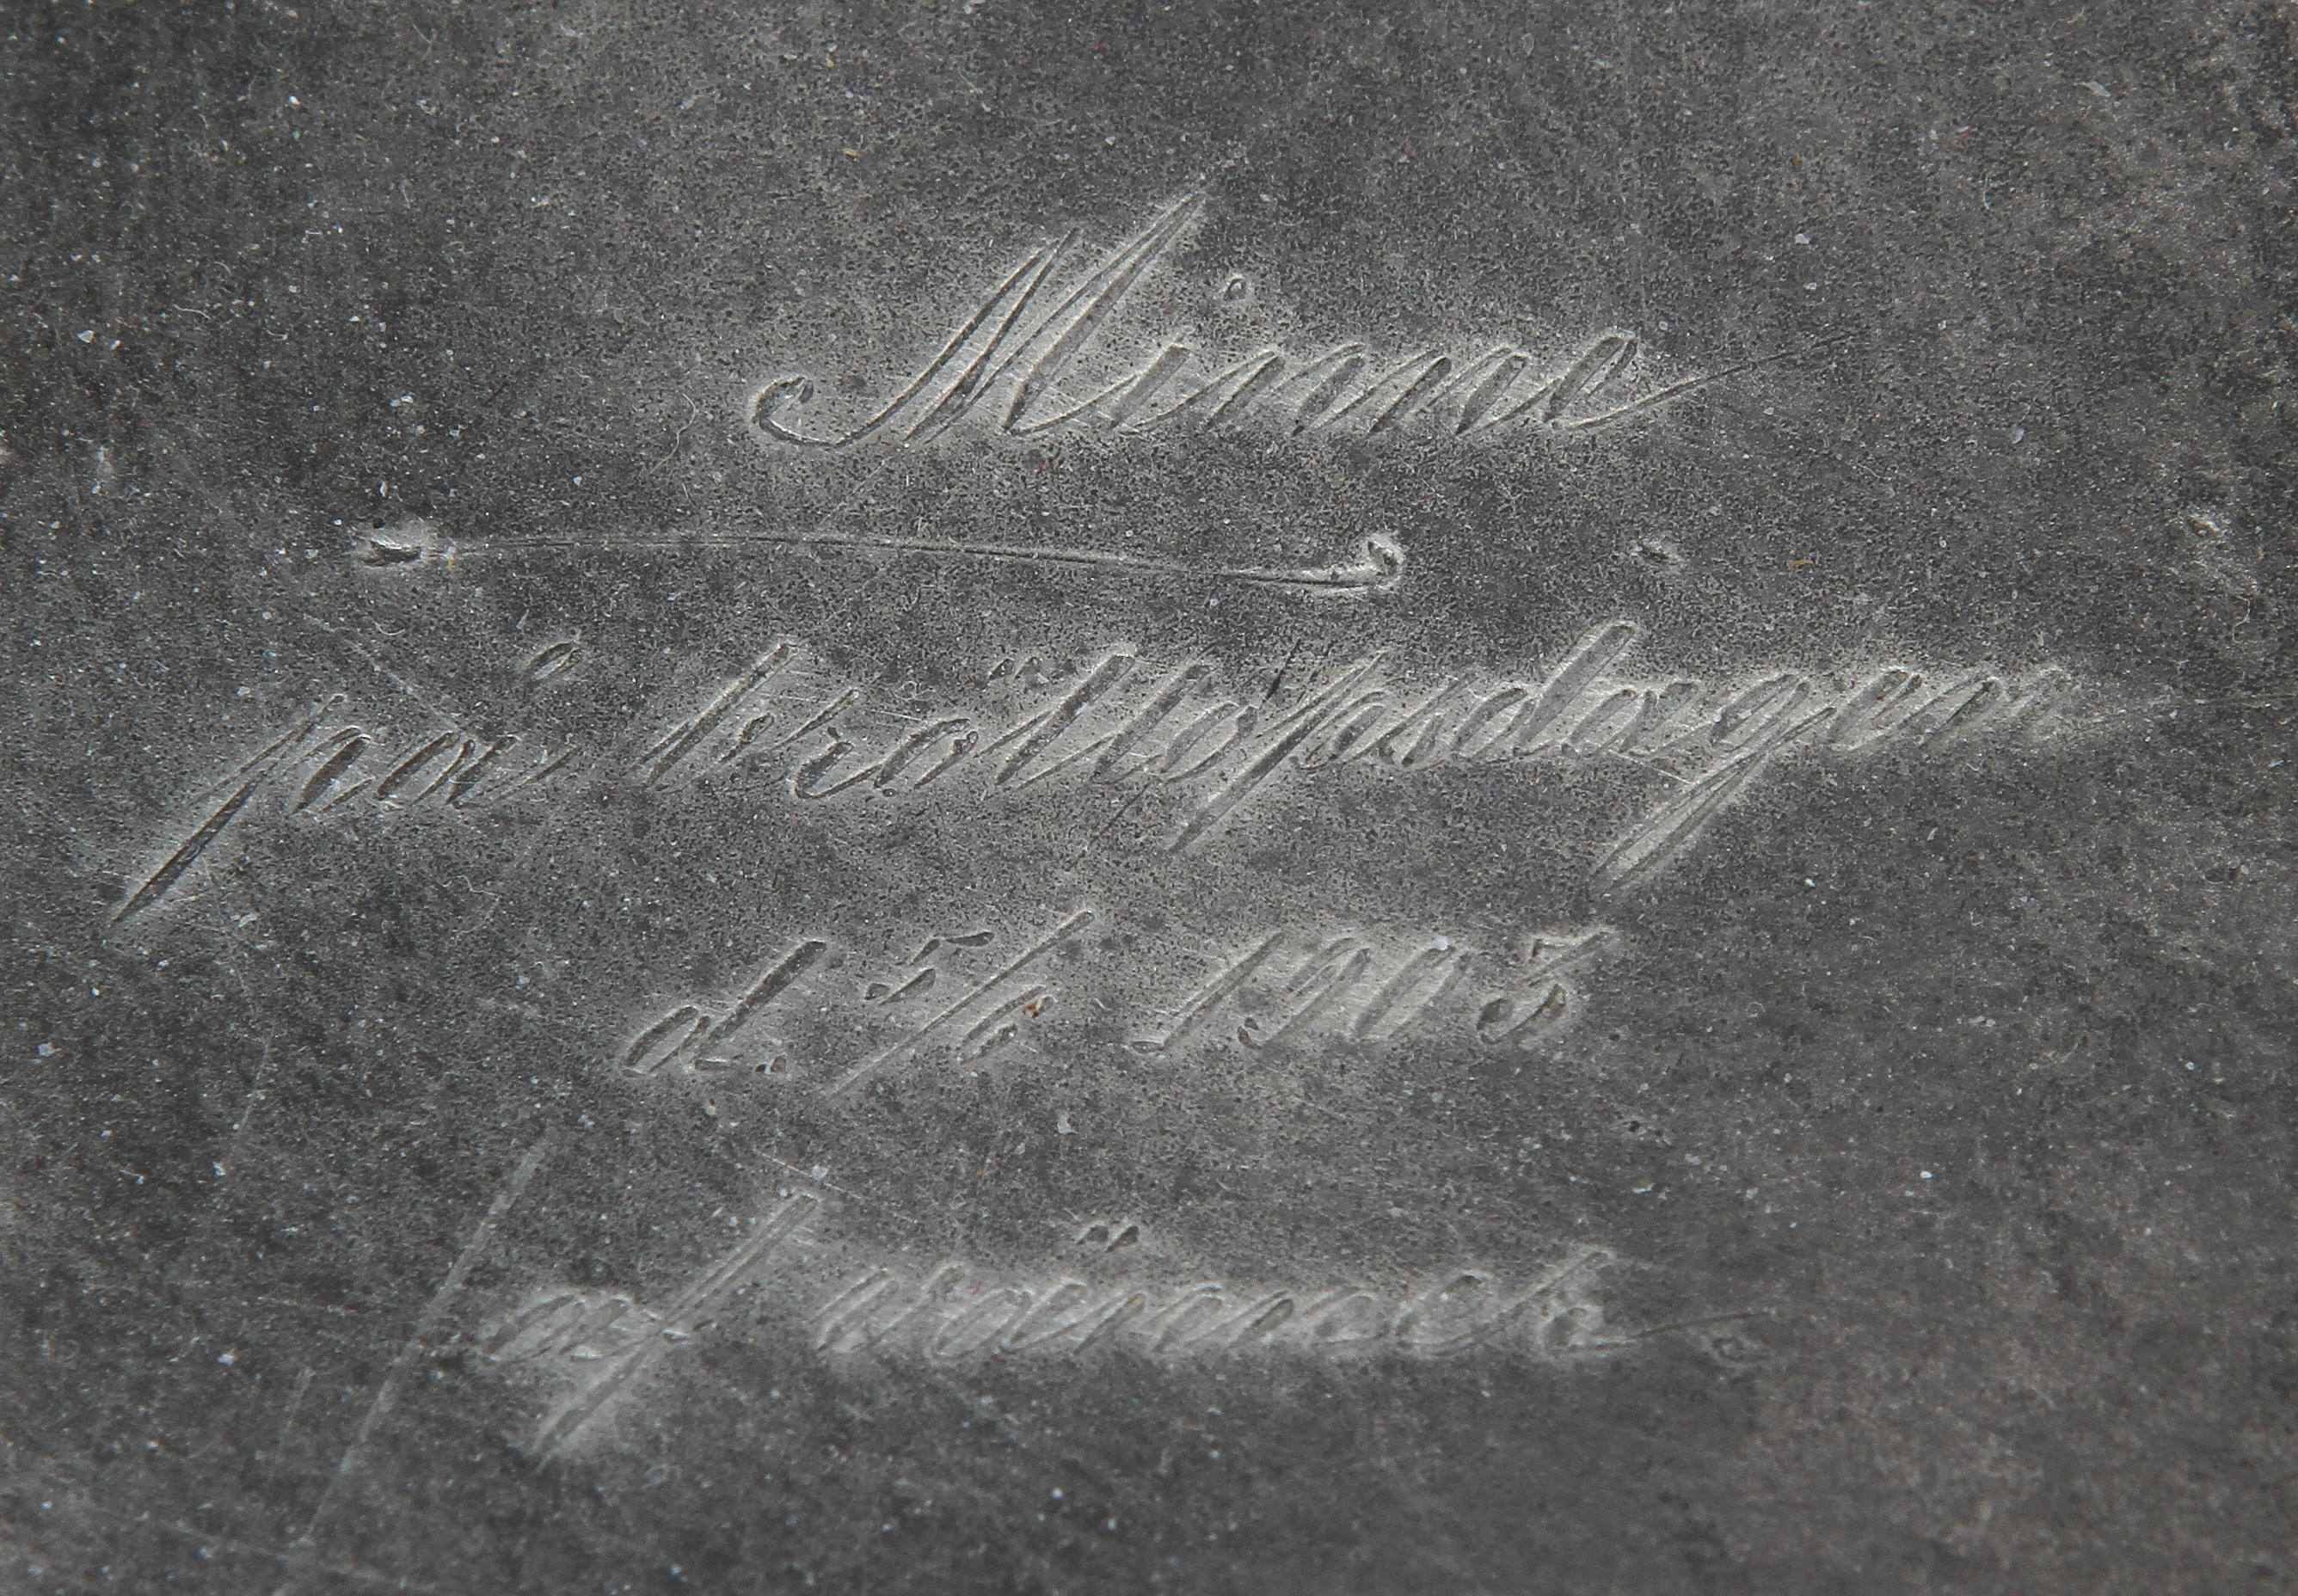 Minne
på bröllopsdagen
d. 5/6 1905
af vänner